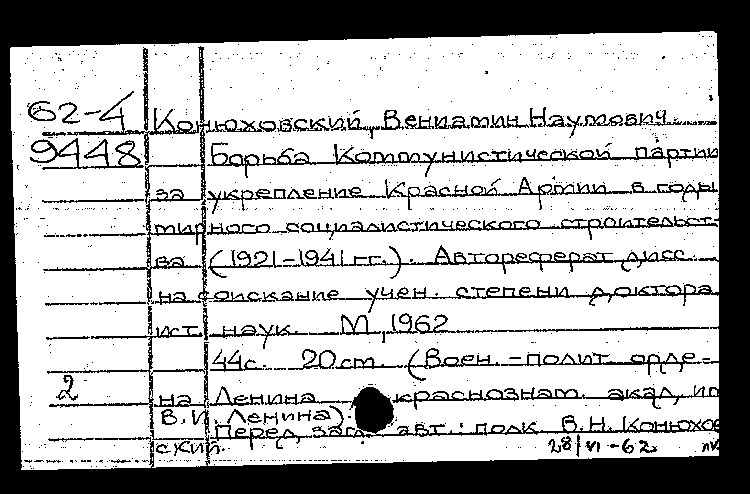 62-4 Конюховский, Вениамин Наумович.
9448 Борьба Коммунистической партии
за укрепление Красной Армии в годы
мирного социалистического строительст-
ва (1921-1941 гг.). Автореферат дисс.
на соискание учен. степени доктора
ист. наук. М, 1962
44с. 20 cm. (Воен.-полит. орде-
2 на Ленина краснознам. акад, им
В.И. Ленина).
Перед загл. авт.: полк. В.Н. Конюхов-
ский.
28/VI-62.